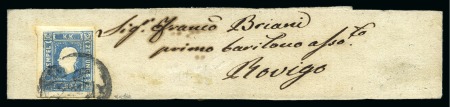 Sigr. Franco Briani
primo baritono asso.to
Rovigo